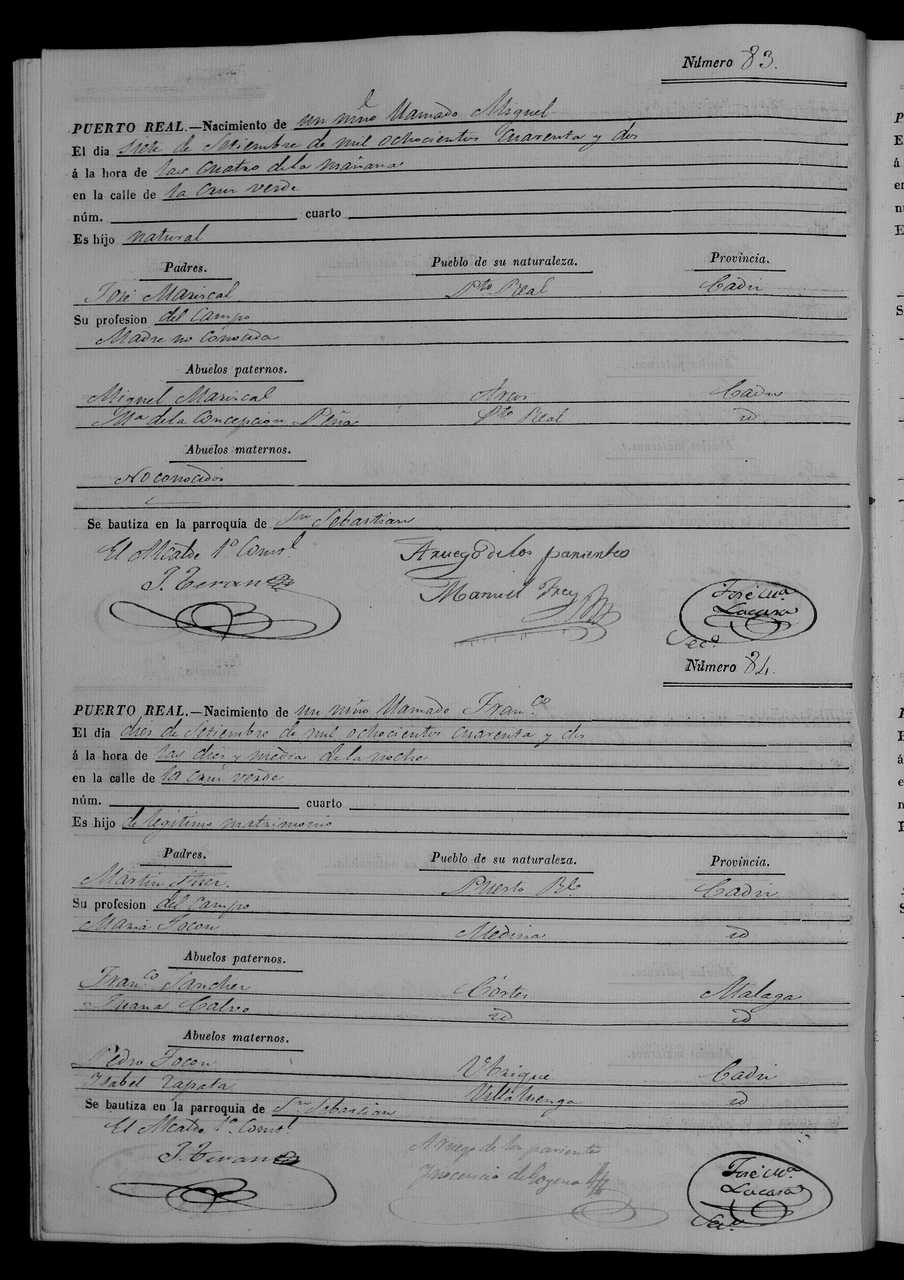 Número 83.
PUERTO REAL.—Nacimiento de un niño llamado Miguel
El dia siete de Setiembre de mil ochocientos cuarenta y dos
á la hora de las cuatro de la mañana
en la calle de la Cruz verde
núm. cuarto
Es hijo natural
Padres. Pueblo de su naturaleza. Provincia.
José Mariscal Pto Real Cadiz
Su profesion del Campo
Madre no Conocida
Abuelos paternos.
Miguel Mariscal Arcos Cadiz
Ma de la Concepcion Peña Pto Real id
Abuelos maternos.
No conocidos
Se bautiza en la parroquia de Sn Sebastian
El Alcalde 1º Consl Aruego de los parientes
J. Teran Manuel Frey José Ma Lacasa
Secº
Número 84.
PUERTO REAL.—Nacimiento de un niño llamado Franco
El dia dies de Setiembre de mil ochocientos cuarenta y dos
á la hora de las dies y media de la noche
en la calle de la Cruz verde
núm. cuarto
Es hijo de legitimo matrimonio
Padres. Pueblo de su naturaleza. Provincia.
Martin Puerto Rl Cadiz
Su profesion del Campo
Maria Jocon Medina id
Abuelos paternos.
Franco Sanchez Córtes Malaga
Juana Calvo id id
Abuelos maternos.
Pedro Jocon Ubrique Cadiz
Isabel Zapata Villaluenga id
Se bautiza en la parroquia de Sn Sebastian
El Alcalde 1º Consl Aruego de los parientes
J. Teran Inocencio José Ma Lacasa
Secº